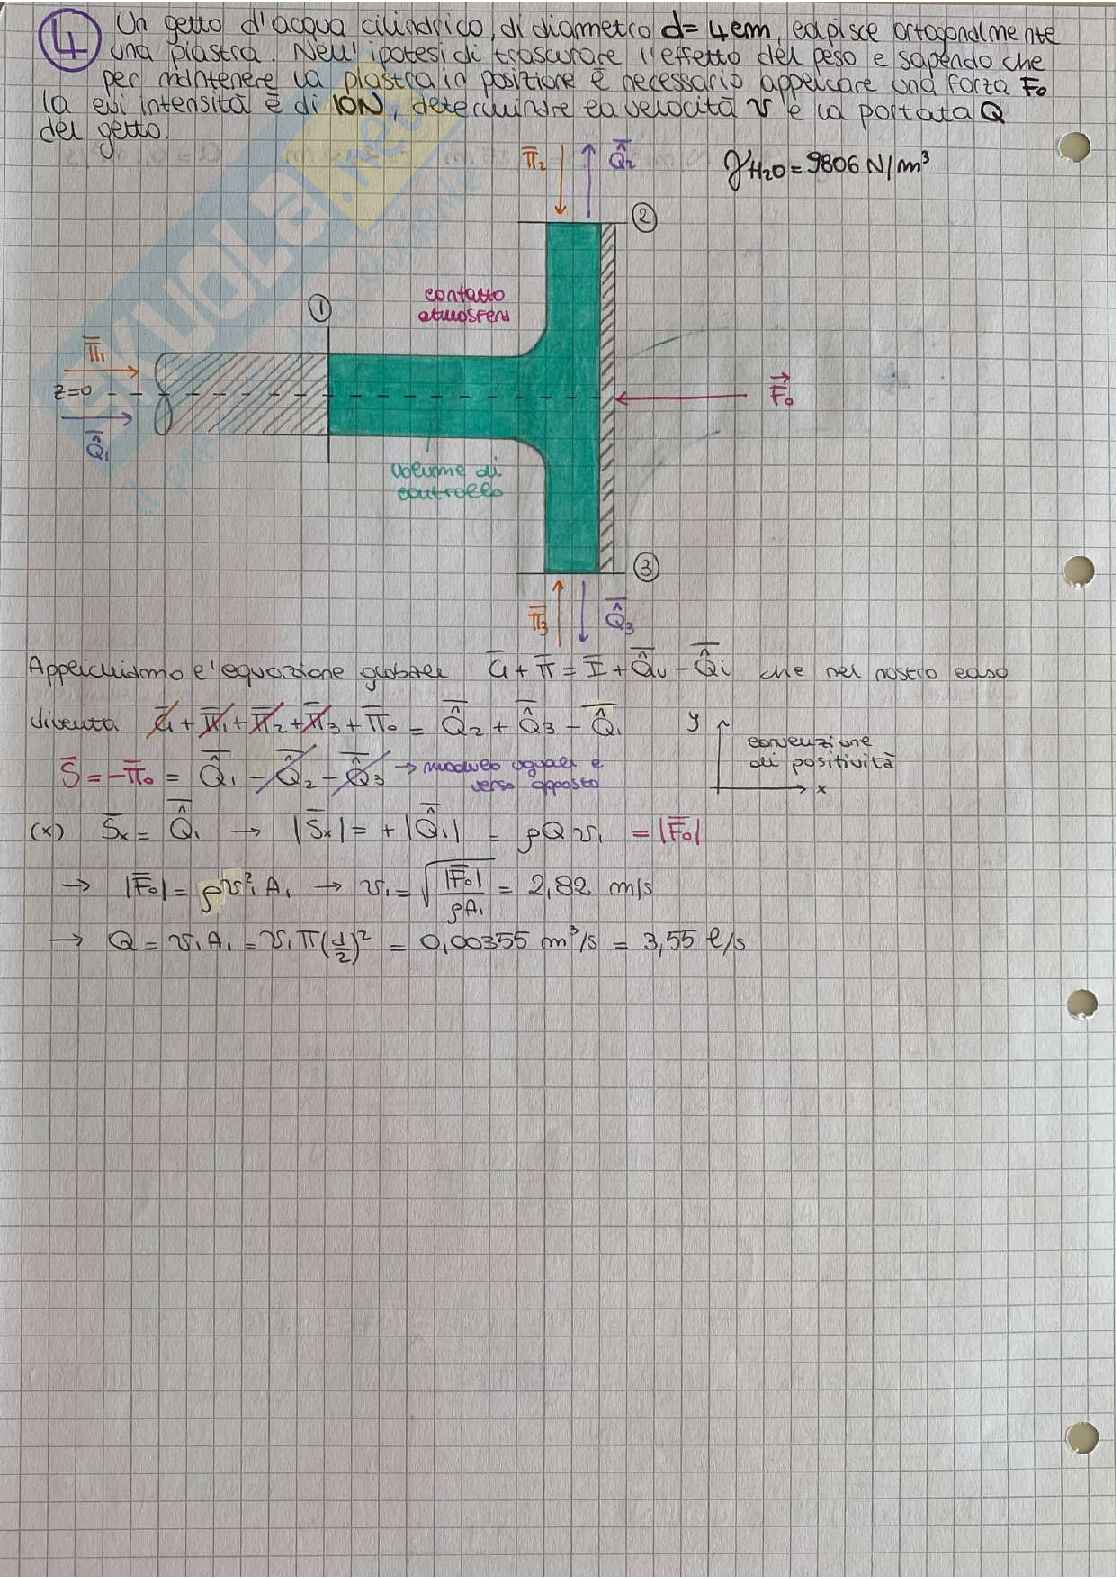 4 Un getto d'acqua cilindrico, di diametro d= 4cm, colpisce ortogonalmente
una piastra. Nell'ipotesi di trascurare l'effetto del peso e sapendo che
per mantenere la piastra in posizione è necessario applicare una forza F₀
la cui intensità è di 10N, determinare la velocità v e la portata Q
del getto.
γH₂O = 9806 N/m³
Π̅₂ Q̂̅₂
②
contatto
atmosfera
①
Π̅₁
z=0
F⃗₀
Q̂̅₁
volume di
controllo
③
Π̅₃ Q̂̅₃
Applichiamo l'equazione globale G̅ + Π̅ = I̅ + Q̂̅u - Q̂̅i che nel nostro caso
diventa G̅ + Π̅₁ + Π̅₂ + Π̅₃ + Π̅₀ = Q̂̅₂ + Q̂̅₃ - Q̂̅₁
y
convenzione
di positività
x
S̅ = -Π̅₀ = Q̂̅₁ - Q̂̅₂ - Q̂̅₃ → modulo uguale e
verso opposto
(x) S̅x = Q̂̅₁ → |S̅x| = + |Q̂̅₁| = ρQv₁ = |F̅₀|
→ |F̅₀| = ρv₁² A₁ → v₁ = √(|F̅₀|/ρA₁) = 2,82 m/s
→ Q = v₁A₁ = v₁π(d/2)² = 0,00355 m³/s = 3,55 l/s